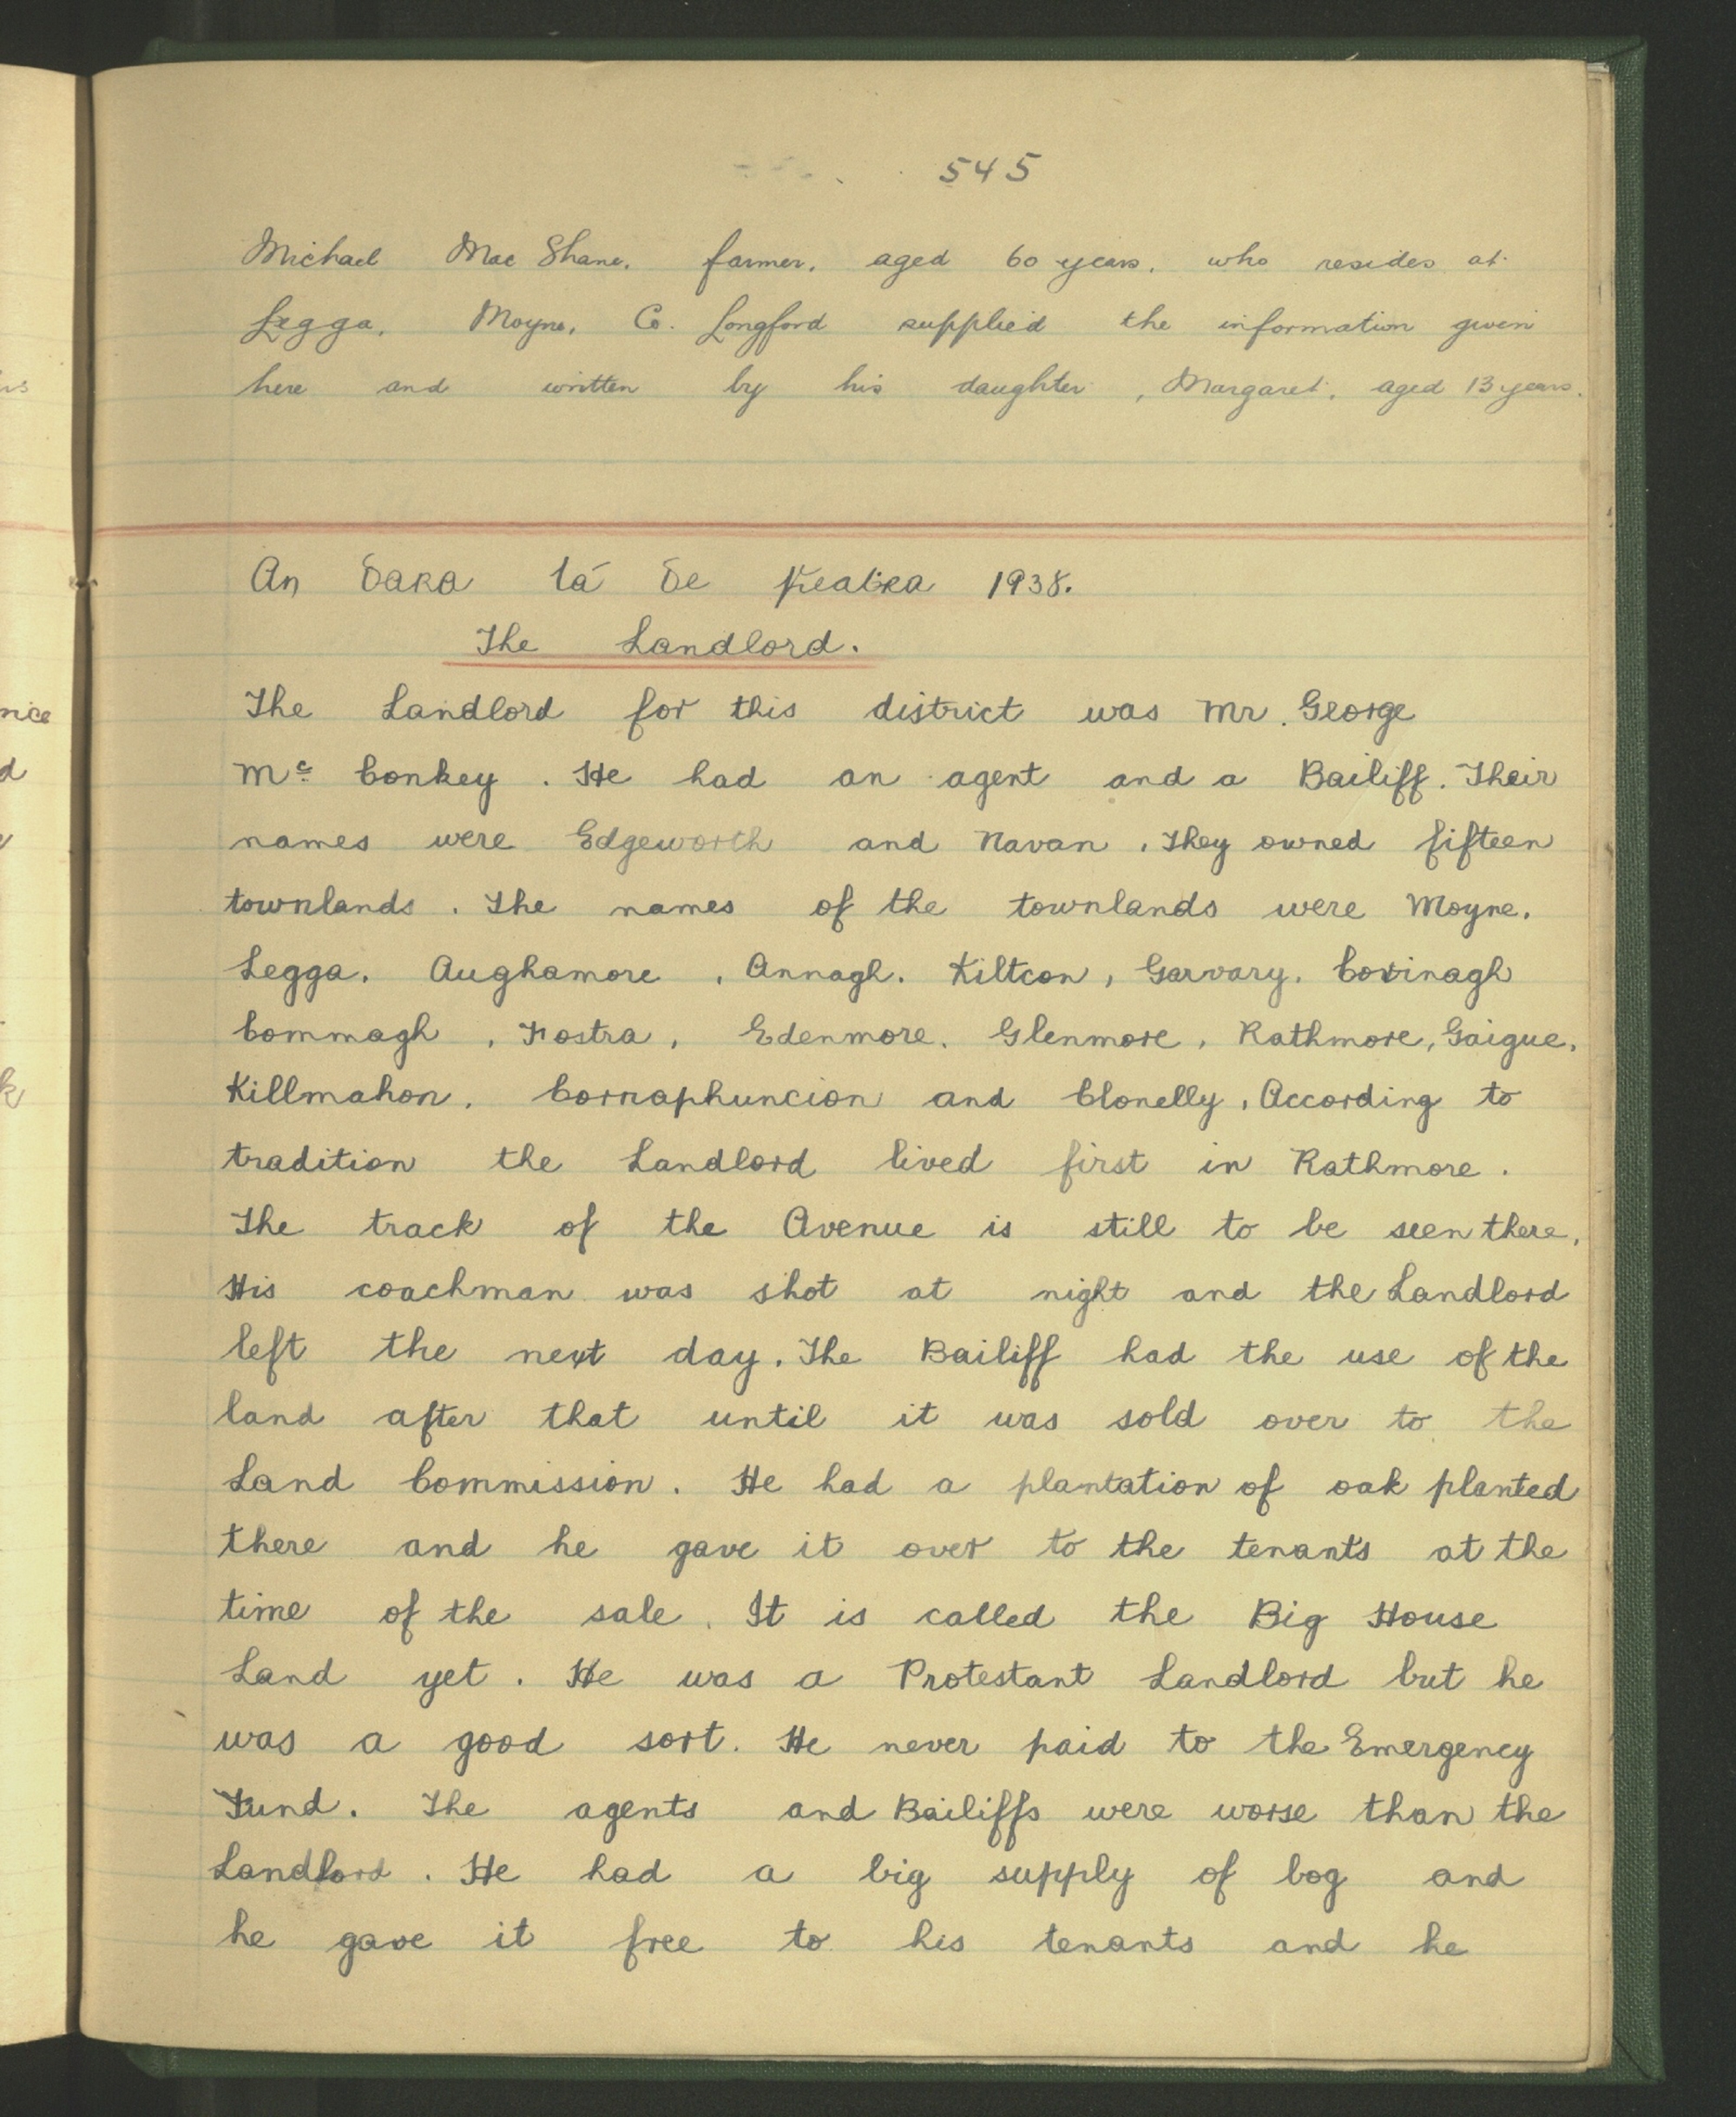 545
Michael Mac Shane, farmer, aged 60 years, who resides at
Legga, Moyne, Co. Longford supplied the information given
here and written by his daughter, Margaret, aged 13 years.
An dara lá de feabra 1938.
The Landlord.
The Landlord for this district was Mr. George
Mc Conkey. He had an agent and a Bailiff. Their
names were Edgeworth and Navan. They owned fifteen
townlands. The names of the townlands were Moyne,
Legga, Aughamore, Annagh, Kiltcon, Garvary, Corinagh
Commagh, Fostra, Edenmore, Glenmore, Rathmore, Gaigue,
Killmahon, Cornaphuncion and Clonelly, According to
tradition the Landlord lived first in Rathmore.
The track of the Avenue is still to be seen there,
His coachman was shot at night and the Landlord
left the next day. The Bailiff had the use of the
land after that until it was sold over to the
Land Commission. He had a plantation of oak planted
there and he gave it over to the tenants at the
time of the sale. It is called the Big House
Land yet. He was a Protestant Landlord but he
was a good sort. He never paid to the Emergency
Fund. The agents and Bailiffs were worse than the
Landlord. He had a big supply of bog and
he gave it free to his tenants and he